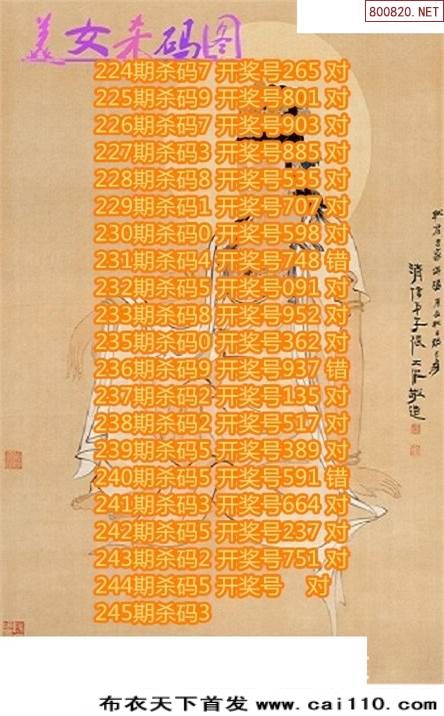 800820.NET
美女杀码图
224期杀码7 开奖号265 对
225期杀码9 开奖号801 对
226期杀码7 开奖号903 对
227期杀码3 开奖号885 对
228期杀码8 开奖号535 对
229期杀码1 开奖号707 对
230期杀码0 开奖号598 对
231期杀码4 开奖号748 错
232期杀码5 开奖号091 对
233期杀码8 开奖号952 对
235期杀码0 开奖号362 对
236期杀码9 开奖号937 错
237期杀码2 开奖号135 对
238期杀码2 开奖号517 对
239期杀码5 开奖号389 对
240期杀码5 开奖号591 错
241期杀码3 开奖号664 对
242期杀码5 开奖号237 对
243期杀码2 开奖号751 对
244期杀码5 开奖号 对
245期杀码3
布衣天下首发 www.cai110.com